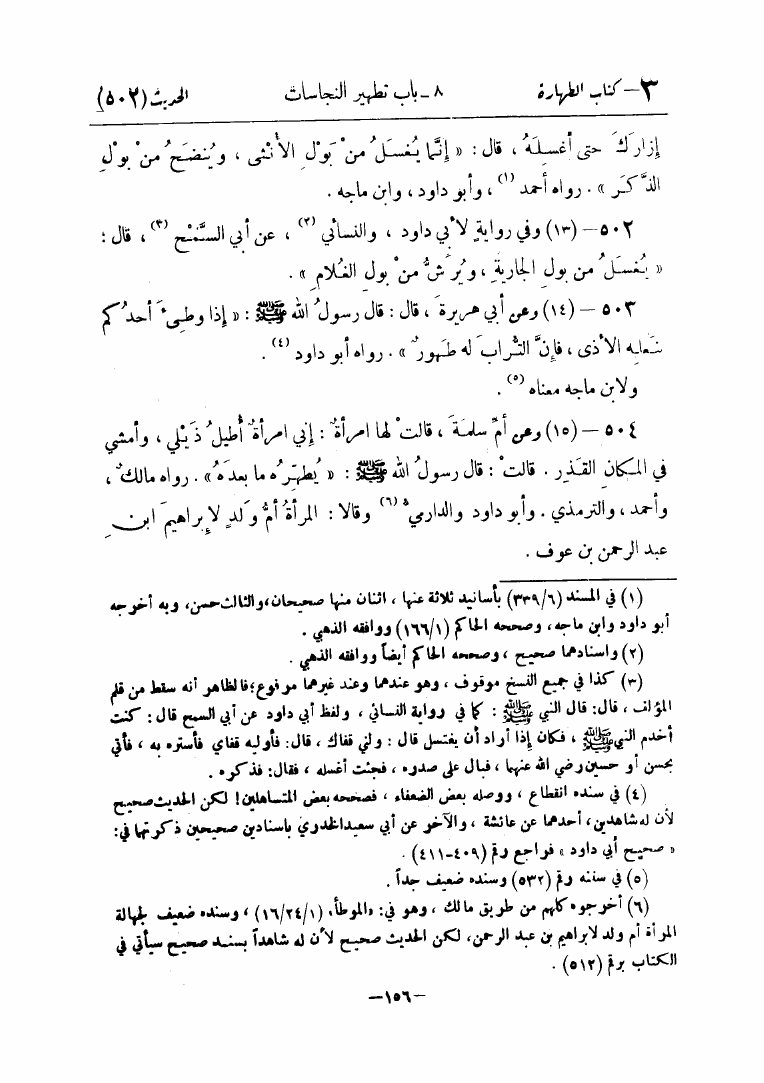 ٣ – كتاب الطهارة ٨ – باب تطهير النجاسات الحديث (٥٠٢)
إزارَكَ حتى أغسِلَهُ ، قال : « إنَّما يُغسَلُ منْ بَوْلِ الأنْثى ، ويُنضَحُ منْ بولِ
الذَّكَرِ » . رواه أحمد (١) ، وأبو داود ، وابن ماجه .
٥٠٢ – (١٣) وفي روايةٍ لأبي داود ، والنسائي (٢) ، عن أبي السَّمْح (٣) ، قال :
« يُغسَلُ من بولِ الجاريةِ ، ويُرَشُّ منْ بولِ الغُلامِ » .
٥٠٣ – (١٤) وعن أبي هريرةَ ، قال : قال رسولُ الله ﷺ : « إذا وطىءَ أحدُكم
بنَعلِه الأذى ، فإنَّ التُّرابَ له طَهورٌ » . رواه أبو داود (٤) .
ولابن ماجه معناه (٥) .
٥٠٤ – (١٥) وعن أمِّ سلمةَ ، قالتْ لها امرأةٌ : إني امرأةٌ أُطيلُ ذَيْلي ، وأمشي
في المكانِ القَذِرِ . قالتْ : قال رسولُ الله ﷺ : « يُطهِّرُه ما بعدَهُ » . رواه مالكٌ ،
وأحمد ، والترمذي . وأبو داود والدارمي (٦) وقالا : المرأةُ أمُّ ولَدٍ لإبراهيمَ ابنِ
عبد الرحمن بن عوف .
(١) في المسند (٣٣٩/٦) بأسانيد ثلاثة عنها ، اثنان منها صحيحان، والثالث حسن، وبه أخرجه
أبو داود وابن ماجه، وصححه الحاكم (١٦٦/١) ووافقه الذهبي .
(٢) واسنادهما صحيح ، وصححه الحاكم أيضاً ووافقه الذهبي .
(٣) كذا في جميع النسخ موقوف ، وهو عندهما وعند غيرهما موفوع؛ فالظاهر أنه سقط من قلم
المؤلف ، قال: قال النبي ﷺ : كما في رواية النسائي ، ولفظ أبي داود عن أبي السمح قال : كنت
أخدم النبي ﷺ ، فكان إذا أراد أن يغتسل قال : ولني قفاك ، قال: فأوليه قفاي فأستره به ، فأتي
بحسن أو حسين رضي الله عنهما ، فبال على صدره ، فجئت أغسله ، فقال: فذكره .
(٤) في سنده انقطاع ، ووصله بعض الضعفاء ، فصححه بعض المتساهلين! لكن الحديث صحيح
لأن له شاهدين، أحدهما عن عائشة ، والآخر عن أبي سعيد الخدري باسنادين صحيحين ذكرتها في:
« صحيح أبي داود » فراجع رقم (٤٠٩-٤١١) .
(٥) في سننه رقم (٥٣٢) وسنده ضعيف جداً .
(٦) أخرجوه كلهم من طريق مالك ، وهو في: «الموطأ» (١٦/٢٤/١) ، وسنده ضعيف لجهالة
المرأة أم ولد لابراهيم بن عبد الرحمن، لكن الحديث صحيح لأن له شاهداً بسند صحيح سيأتي في
الكتاب برقم (٥١٢) .
–١٥٦–